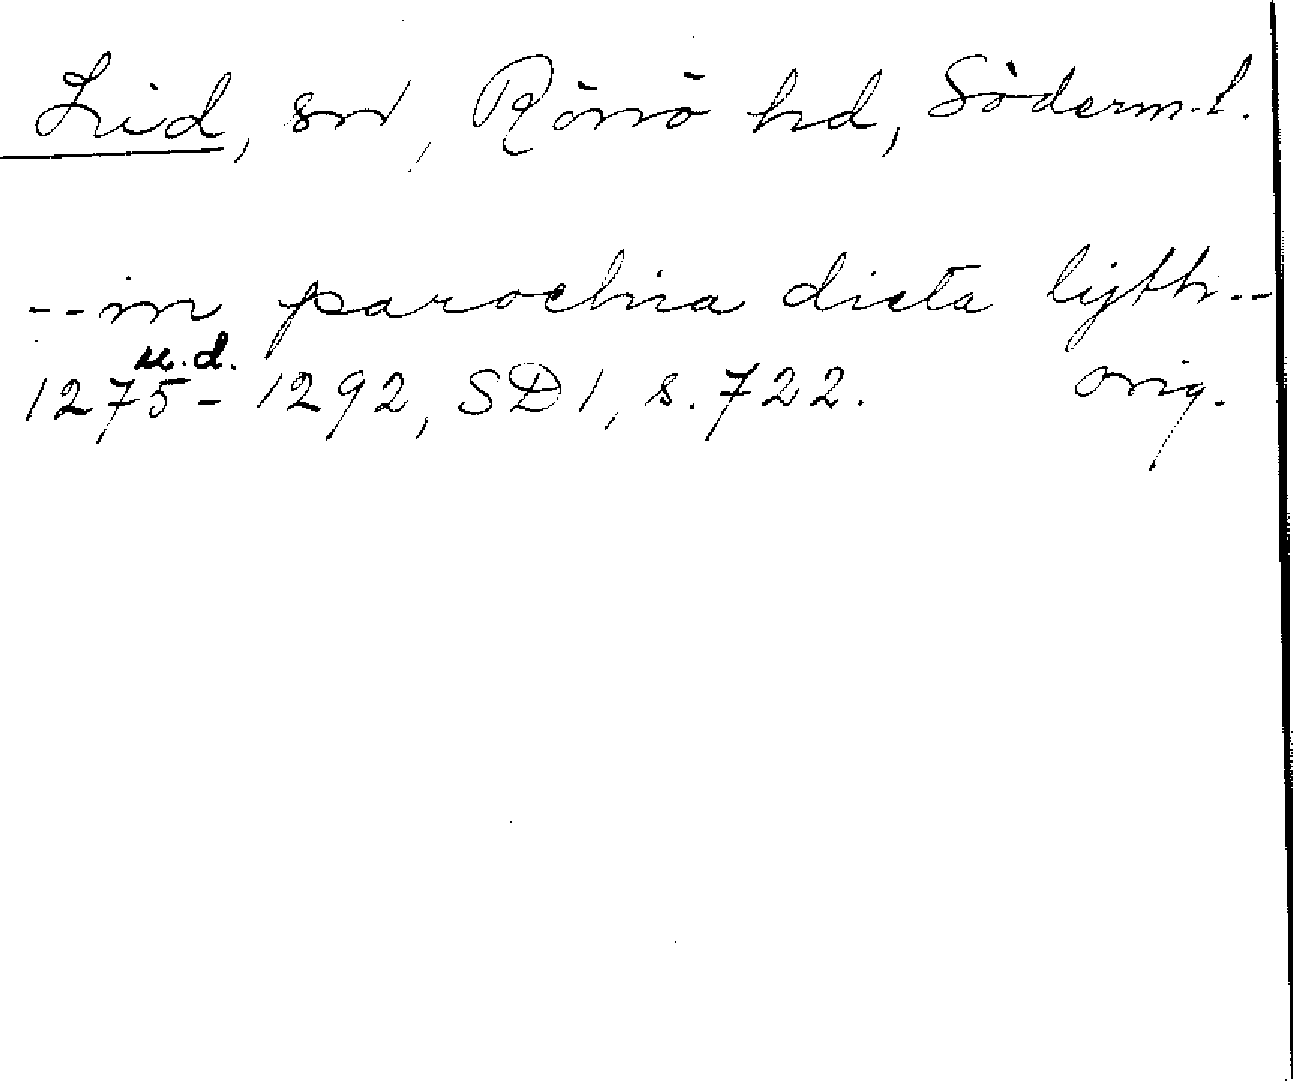 Lid, sn, Rönö hd, Söderm.l.
--in parochia dicta lijth--
u.d.
1275-1292, SD 1, s. 722. orig.